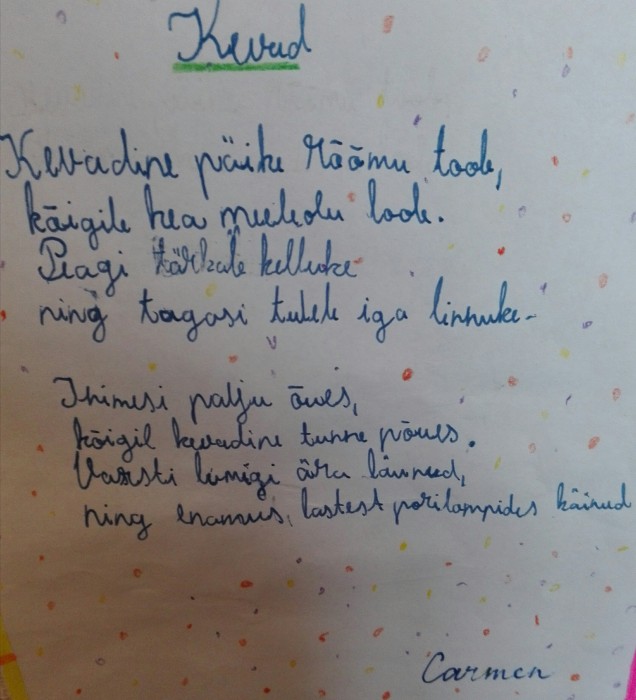 Kevad
Kevadine päike rõõmu toob,
kõigile hea meeleolu loob.
Peagi tärkab kelluke
ning tagasi tuleb iga linnuke.
Inimesi palju õues,
kõigil kevadine tunne põues.
Varsti lumigi ära läinud,
ning enamus, lastest porilompides käinud
Carmen